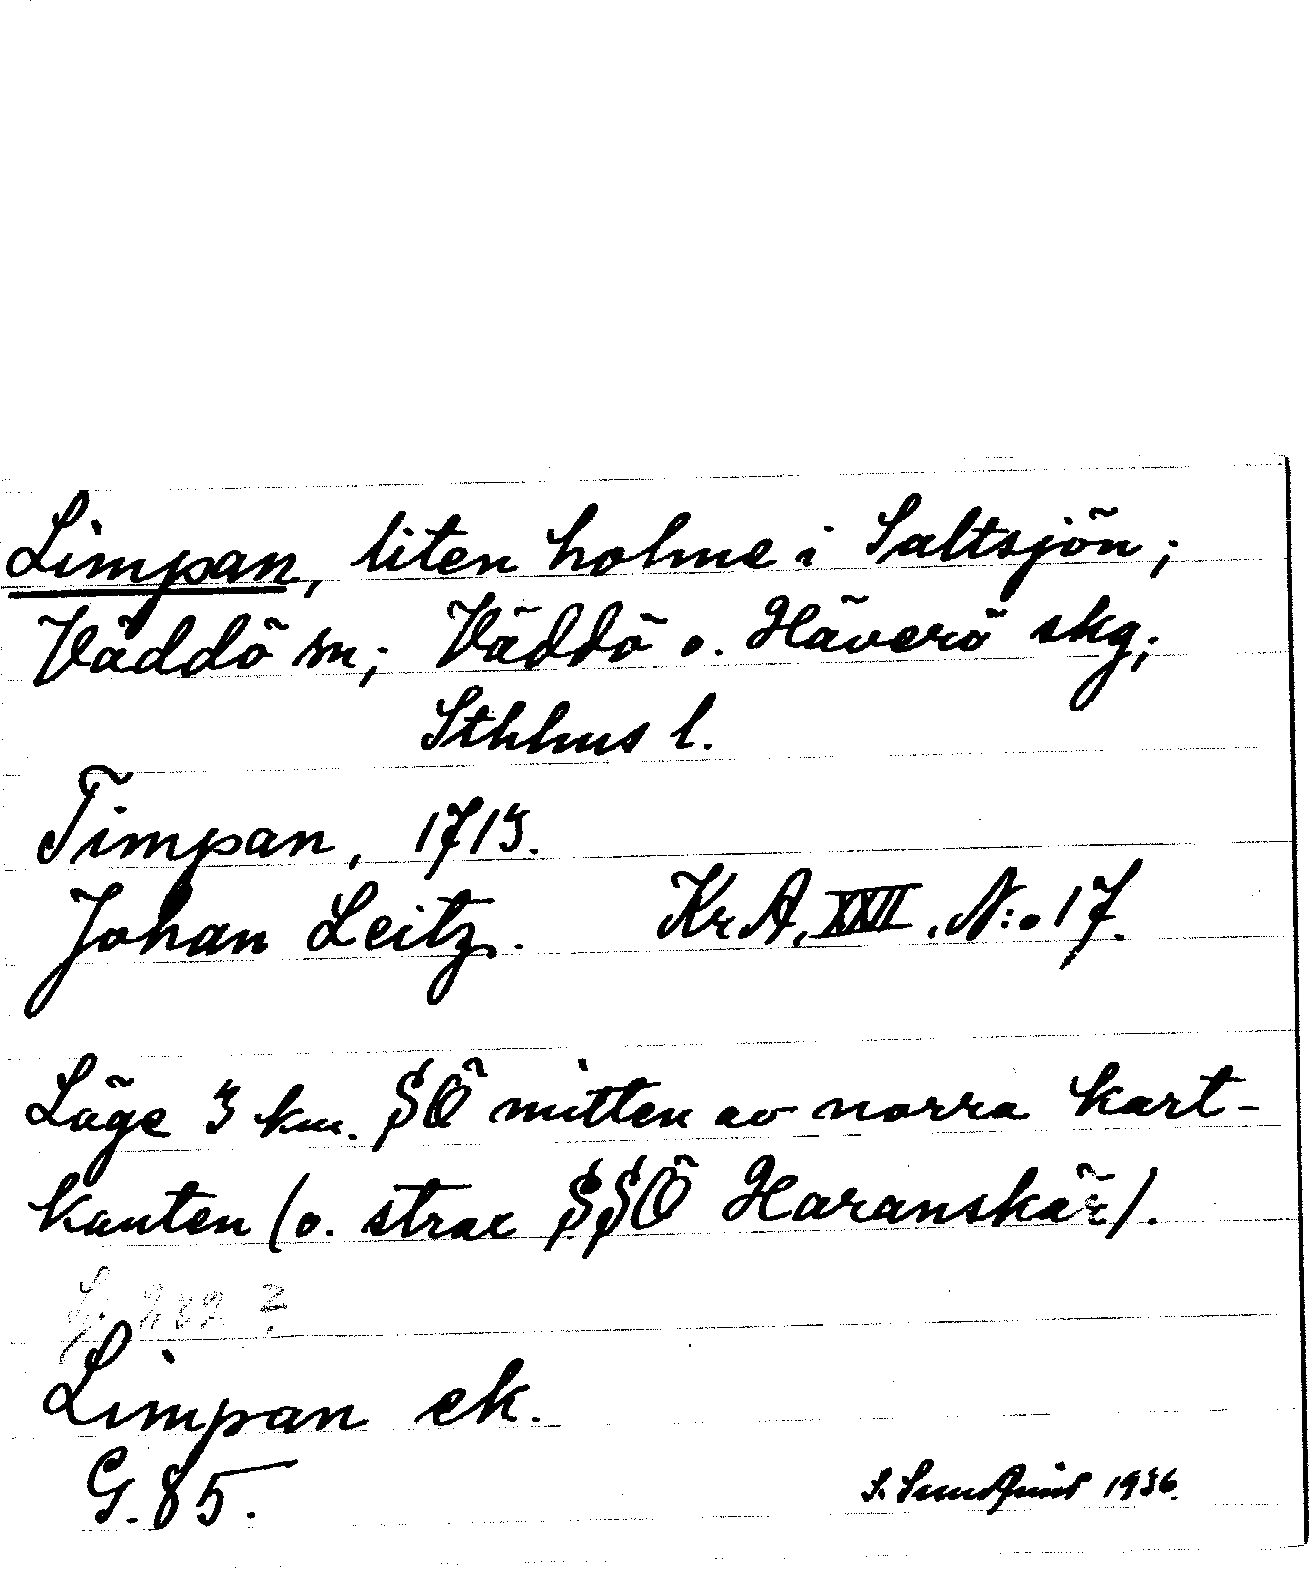 Limpan, liten holme i Saltsjön;
Väddö sn; Väddö o. Häverö skg;
Sthlms l.
Timpan, 1713.
Johan Leitz. KrA, XXII, N:o 17.
Läge 3 km. SÖ mitten av norra kart-
kanten (o. strax SSÖ Haranskär).
?
Limpan ek.
G. 85.
S. Sundquist 1936.